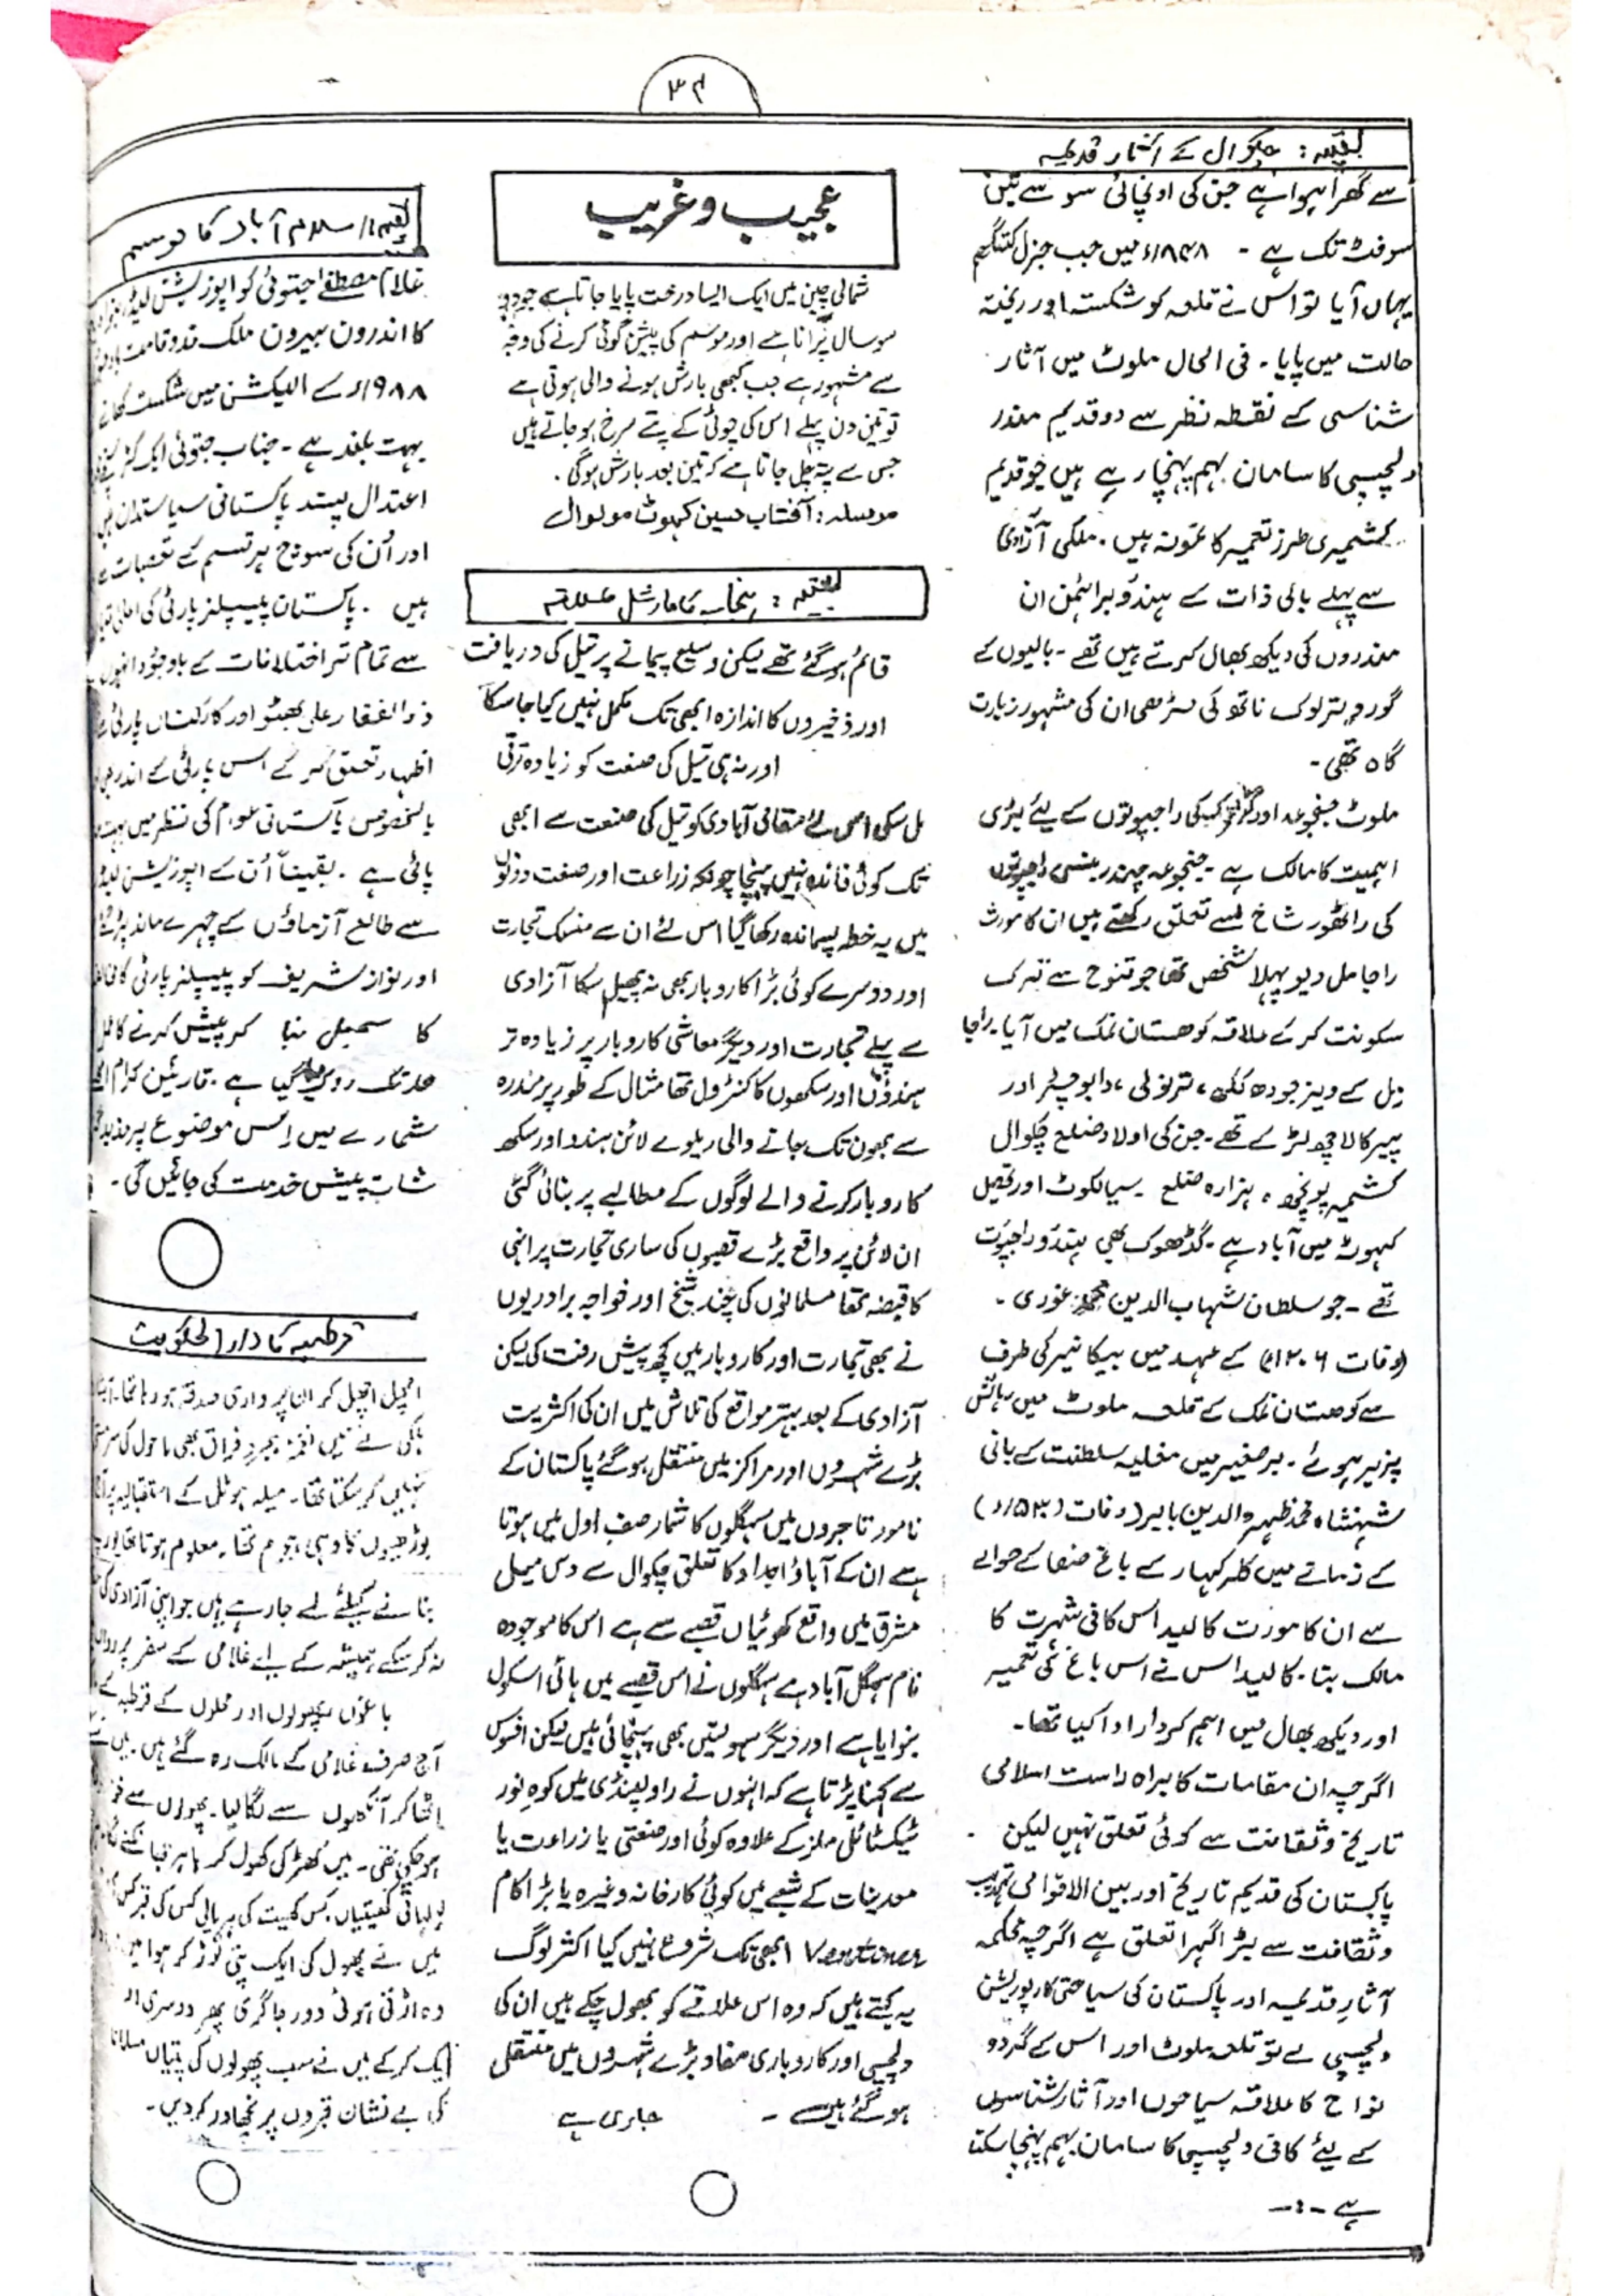 ۳۴
بقیہ: چکوال کے آثار قدیمہ
سے گھرا ہوا ہے جن کی اونچائی سو سے تین
سو فٹ تک ہے - ۱۸۴۸ء میں جب جنرل کننگھم
یہاں آیا تو اس نے قلعہ کو شکستہ اور ریختہ
حالت میں پایا - فی الحال ملوٹ میں آثار
شناسی کے نقطہ نظر سے دو قدیم مندر
دلچسپی کا سامان بہم پہنچا رہے ہیں جو قدیم
کشمیری طرز تعمیر کا نمونہ ہیں۔ ملکی آزادی
سے پہلے بالی ذات کے ہندو براہمن ان
مندروں کی دیکھ بھال کرتے ہیں تھے - بالیوں کے
گورو پترلوک ناتھ کی مڑھی ان کی مشہور زیارت
گاہ تھی -
ملوٹ جنجوعہ اور کمبکی راجپوتوں کے لیئے بڑی
اہمیت کا مالک ہے - جنجوعہ چندر بنسی راجپوتوں
کی راٹھور شاخ سے تعلق رکھتے ہیں ان کا مورث
راجا مل دیو پہلا شخص تھا جو قنوج سے ترک
سکونت کر کے علاقہ کوھستان نمک میں آیا۔ راجا
مل کے ویر جودھ کلکھ، ترنولی، دابوچلہ اور
پیر کالا چھ لڑکے تھے - جن کی اولاد ضلع چکوال
کشمیر پونچھ، ہزارہ ضلع سیالکوٹ اور تحصیل
کہوٹہ میں آباد ہے - گڈھوک بھی ہندو راجپوت
تھے - جو سلطان شہاب الدین محمد غوری -
(وفات ۱۲۰۶ء) کے عہد میں بیکانیر کی طرف
سے کوھستان نمک کے قلعہ ملوٹ میں رہائش
پزیر ہوئے - برصغیر میں مغلیہ سلطنت کے بانی
شہنشاہ محمد ظہیر الدین بابر (وفات (۱۵۳۰ء)
کے زماتے میں کلر کہار کے باغ صفا کے حوالے
سے ان کا مورث کالید اس کافی شہرت کا
مالک بنا - کالیداس نے اس باغ کی تعمیر
اور دیکھ بھال میں اہم کردار ادا کیا تھا -
اگرچہ ان مقامات کا براہ راست اسلامی
تاریخ و ثقافت سے کوئی تعلق نہیں لیکن
پاکستان کی قدیم تاریخ اور بین الاقوامی تہذیب
و ثقافت سے بڑا گہرا تعلق ہے اگرچہ محکمہ
آثار قدیمہ اور پاکستان کی سیاحتی کارپوریشن
دلچسپی لے تو قلعہ ملوٹ اور اس کے گردو
نواح کا علاقہ سیاحوں اور آثار شناسوں
کے لیئے کافی دلچسپی کا سامان بہم پہنچا سکتا
ہے -:-
عجیب و غریب
شمالی چین میں ایک ایسا درخت پایا جاتا ہے جو دو
سو سال پُرانا ہے اور موسم کی پیشن گوئی کرنے کی وجہ
سے مشہور ہے جب کبھی بارش ہونے والی ہوتی ہے
تو تین دن پہلے اس کی چوٹی کے پتے سرخ ہو جاتے ہیں
جس سے پتہ چل جاتا ہے کہ تین بعد بارش ہوگی۔
مرسلہ: آفتاب حسین کہوٹ مولوال
بقیہ: پنجاب کا مارشل علاقہ
قائم ہو گئے تھے لیکن وسیع پیمانے پر تیل کی دریافت
اور ذخیروں کا اندازہ ابھی تک مکمل نہیں کیا جا سکا
اور نہ ہی تیل کی صنعت کو زیادہ ترقی
مل سکی اس لئے مقامی آبادی کو تیل کی صنعت سے ابھی
تک کوئی فائدہ نہیں پہنچا چونکہ زراعت اور صنعت دونوں
میں یہ خطہ پسماندہ رکھا گیا اس لئے ان سے منسلک تجارت
اور دوسرے کوئی بڑا کاروبار بھی نہ پھیل سکا آزادی
سے پہلے تجارت اور دیگر معاشی کاروبار پر زیادہ تر
ہندؤں اور سکھوں کا کنٹرول تھا مثال کے طور پر مندرہ
سے بھون تک جانے والی ریلوے لائن ہندو اور سکھ
کاروبار کرنے والے لوگوں کے مطالبے پر بنائی گئی
ان لائن پر واقع بڑے قصبوں کی ساری تجارت پر انہی
کا قبضہ تھا مسلمانوں کی چند شیخ اور خواجہ برادریوں
نے بھی تجارت اور کاروبار میں کچھ پیش رفت کی لیکن
آزادی کے بعد بہتر مواقع کی تلاش میں ان کی اکثریت
بڑے شہروں اور مراکز میں منتقل ہو گئے پاکستان کے
نامور تاجروں میں سہگلوں کا شمار صف اول میں ہوتا
ہے ان کے آباؤ اجداد کا تعلق چکوال سے دس میل
مشرق میں واقع کھوٹیاں قصبے سے ہے اس کا موجودہ
نام سہگل آباد ہے سہگلوں نے اس قصبے میں ہائی اسکول
بنوایا ہے اور دیگر سہولتیں بھی پہنچائی ہیں لیکن افسوس
سے کہنا پڑتا ہے کہ انہوں نے راولپنڈی میں کوہِ نور
ٹیکسٹائل ملز کے علاوہ کوئی اور صنعتی یا زراعت یا
معدینات کے شعبے میں کوئی کارخانہ وغیرہ یا بڑا کام
Ventiner ابھی تک شروع نہیں کیا اکثر لوگ
یہ کہتے ہیں کہ وہ اس علاقے کو بھول چکے ہیں ان کی
دلچسپی اور کاروباری مفاد بڑے شہروں میں منتقل
ہو گئے ہیں - جاری ہے
بقیہ: اسلام آباد کا موسم
غلام مصطفےٰ جتوئی کو اپوزیشن لیڈر
کا اندرون بیرون ملک قد و قامت
۱۹۸۸ء کے الیکشن میں شکست کھانے
بہت بلند ہے - جناب جتوئی ایک
اعتدال پسند پاکستانی سیاستدان ہیں
اور اُن کی سوچ ہر قسم کے تعصبات
ہیں - پاکستان پیپلز پارٹی کی اعلیٰ
سے تمام تر اختلافات کے باوجود انہوں
ذوالفقار علی بھٹو اور کارکنان پارٹی
اظہار تعلق کر کے اس پارٹی کے اندر
بالخصوص پاکستانی عوام کی نظر میں بہت
پائی ہے - یقیناً اُن کے اپوزیشن لیڈر
سے طالع آزماؤں کے چہرے ماند پڑ
اور نواز شریف کو پیپلز پارٹی
کا سمبل بنا کر پیش کرنے کا عمل
حد تک روک گیا ہے۔ قارئین کرام
شمارے میں اس موضوع پر مذید
شات پیش خدمت کی جائیں گی -
قرطبہ کا دار الحکومت
اچھل اچھل کر ان پر واری صدقہ ہو رہا تھا۔
ہلکی لے میں نغمہ ہجر و فراق بھی ماحول کی
نہیں کر سکتا تھا - میلہ ہوٹل کے استقبالیہ پر
بوڑھیوں کا وہی ہجوم تھا۔ معلوم ہوتا تھا
بنانے کیلئے لے جا رہے ہیں جو اپنی آزادی کی
نہ کر سکے ہمیشہ کے لیے غلامی کے سفر پر
باغوں پھولوں اور محلوں کے قرطبہ کے
آج صرف غلامی کے مالک رہ گئے ہیں۔ میں نے
اٹھا کر آنکھوں سے لگا لیا۔ پھولوں سے
ہو چکی تھی۔ میں کھڑکی کھول کر باہر
لہلہاتی کھیتیاں۔ کس کھیت کی ہریالی کس کی قبر
میں نے پھول کی ایک پتی توڑ کر ہوا میں
وہ اڑتی ہوئی دور جا گری پھر دوسری
ایک کر کے میں نے سب پھولوں کی پتیاں
کی بے نشان قبروں پر نچھاور کر دیں -